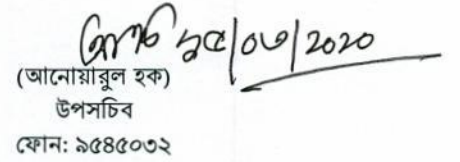 ১৫/০৩/2020
(আনোয়ারুল হক)
উপসচিব
ফোন: ৯৫৪৫০৩২